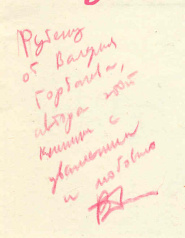 Рубену
от Валерия
Горбачева,
автора этой
книжки с
уважением
и любовью